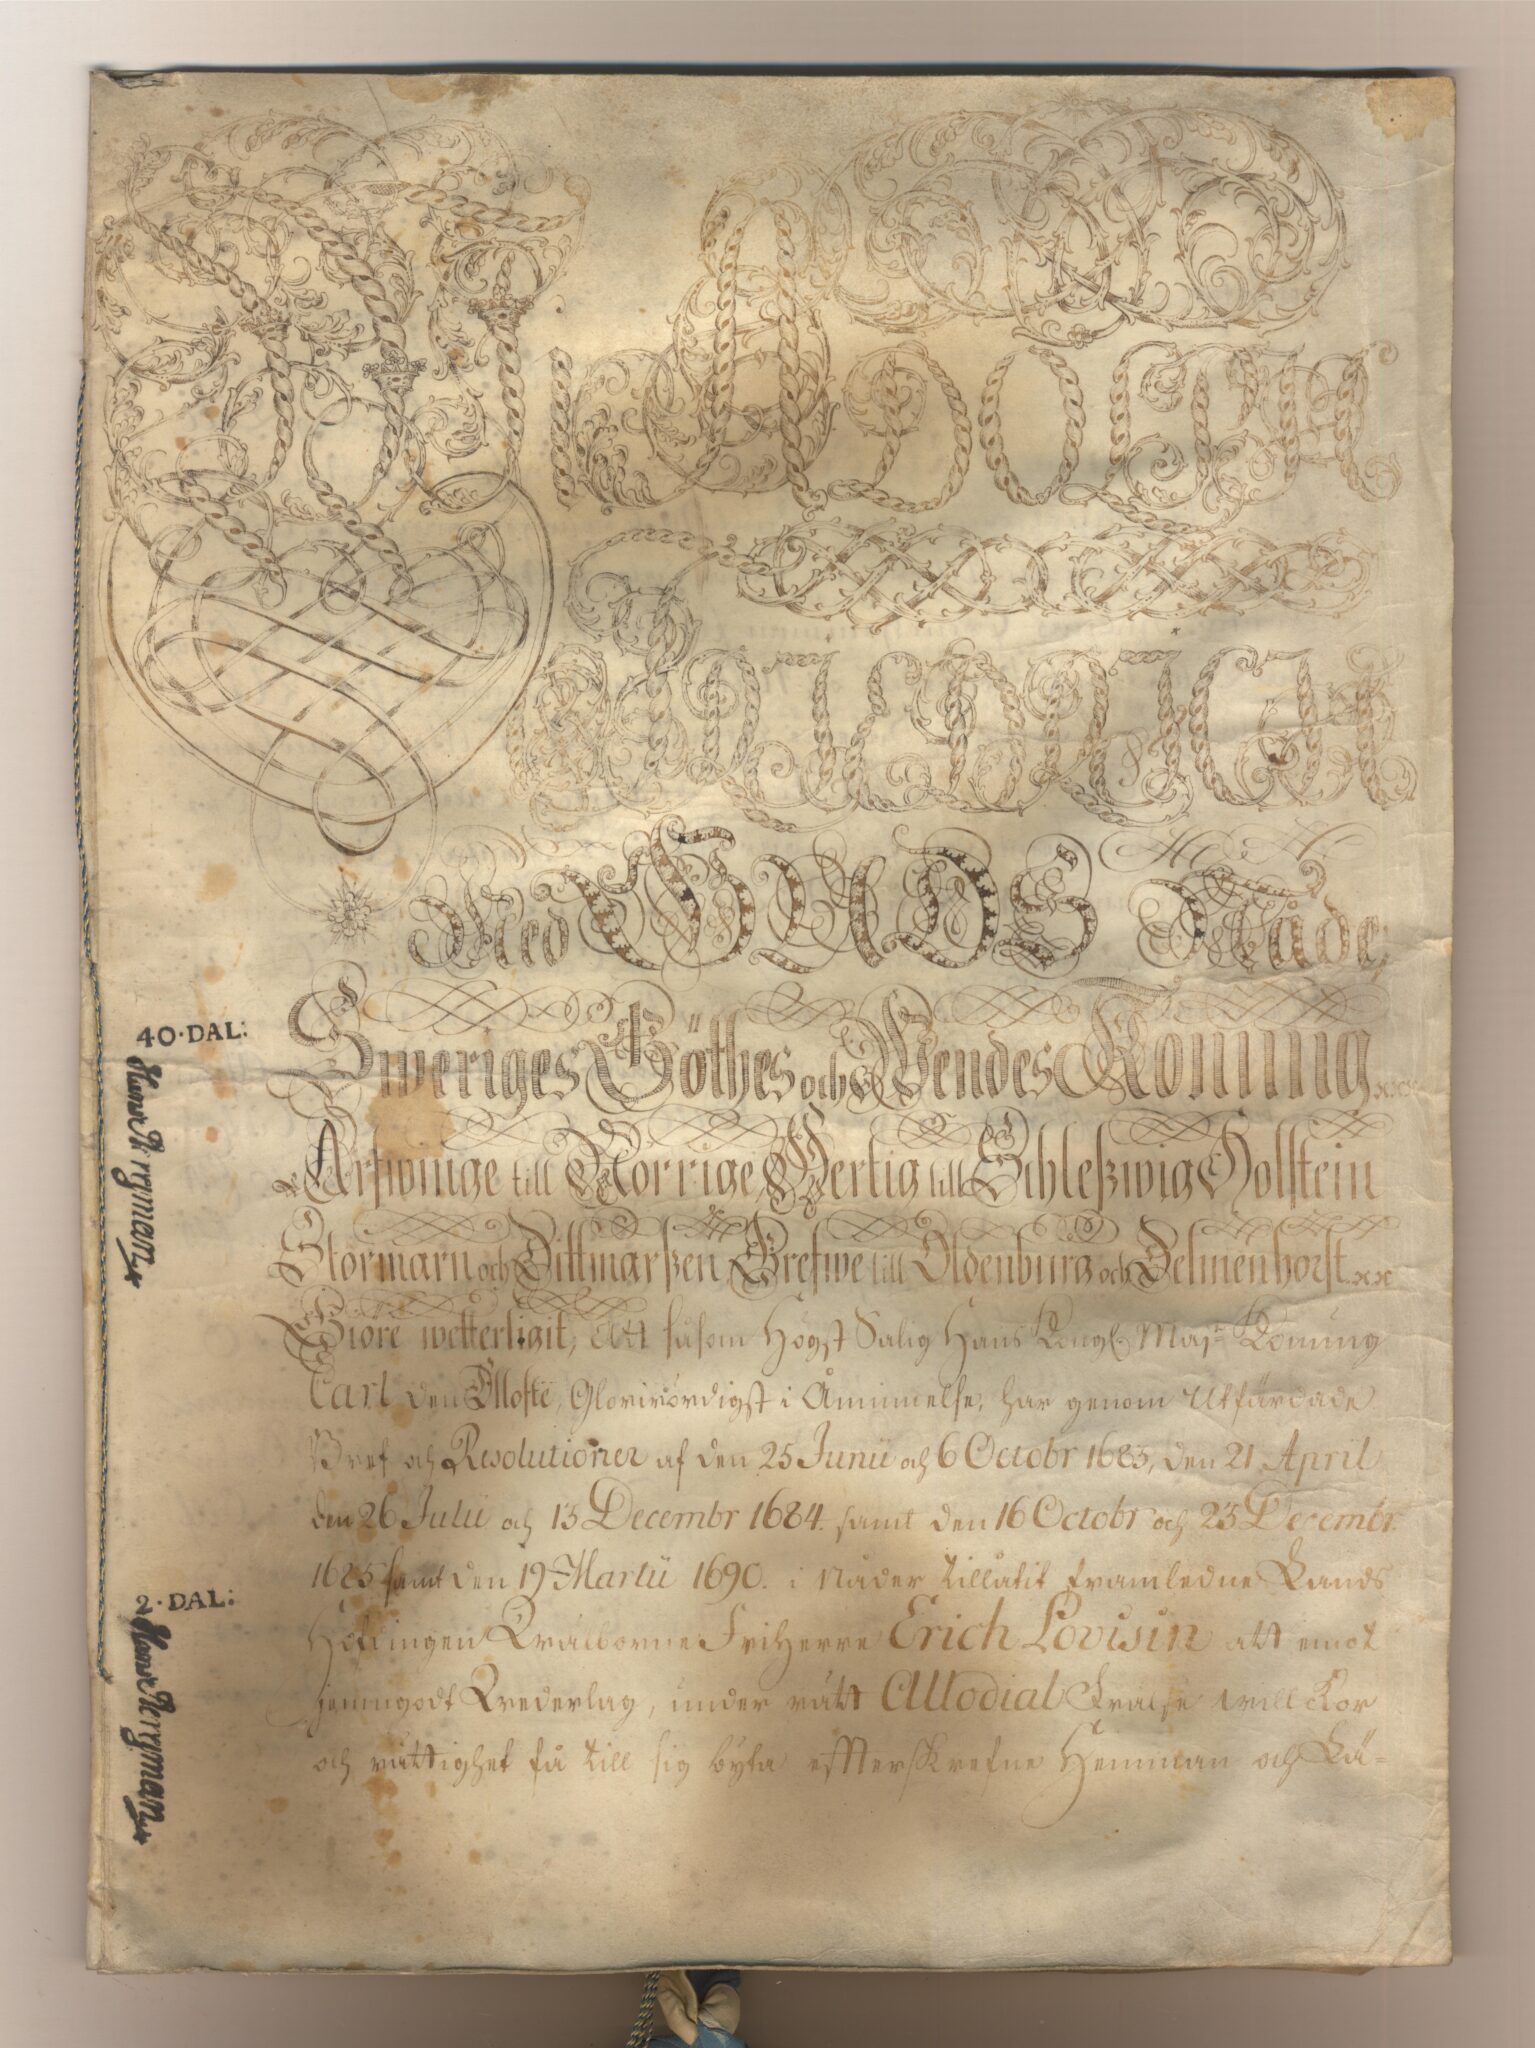 WI ADOLPH
FRIEDRICH
Med GUDS Nåde,
Sweriges Göthes och Wendes Konung
Arfwinge till Norrige, Hertig till Schleßwig Holstein
Stormarn och Dittmarßen, Grefwe till Oldenburg och Delmenhorst
Giöre wetterligit, Att såsom Högst Salig Hans Kongl. Maj:t Konung
Carl den Ellofte, Glorwördigst i Åminnelse, har genom utfärdade
Bref och Resolutioner af den 25 Junii och 6 Octobr 1683, den 21 April
den 26 Julii och 13 Decembr 1684. samt den 16 Octobr och 23 Decembr.
1685 samt den 19 Martii 1690. i Nåder tillåtit framledne Lands
Höfdingen Wälborne Friherre Erich Lovisin att emot
jemngodt Wederlag, under rätt Allodial Frälse willkor
och rättighet få till sig byta efterskrefne Hemman och Lä-
40·DAL:
2·DAL: